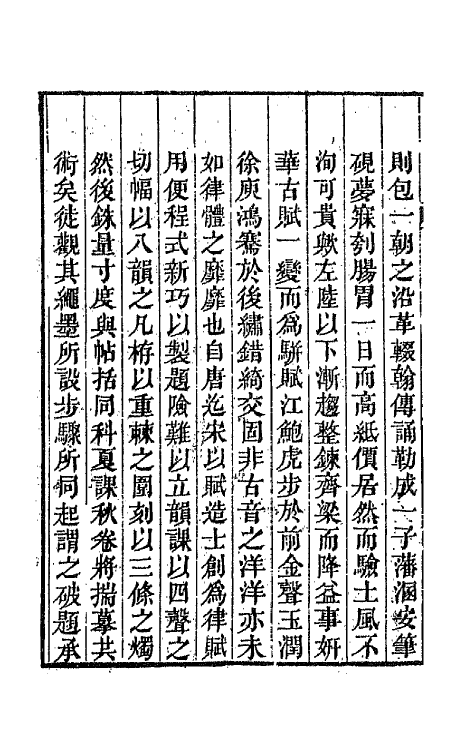 則包一朝之沿革輟翰傳誦勒成一子藩溷安筆
硯夢寐刳腸胃一日而高紙價居然而驗土風不
洵可貴歟左陸以下漸趨整鍊齊梁而降益事妍
華古賦一變而爲駢賦江鮑虎步於前金聲玉潤
徐庾鴻騫於後繡錯綺交固非古音之洋洋亦未
如律體之靡靡也自唐迄宋以賦造士創爲律賦
用便程式新巧以製題險難以立韻課以四聲之
切幅以八韻之凡栫以重棘之圍刻以三條之燭
然後銖量寸度與帖括同科夏課秋卷將揣摹共
術矣徒觀其繩墨所設步驟所同起謂之破題承